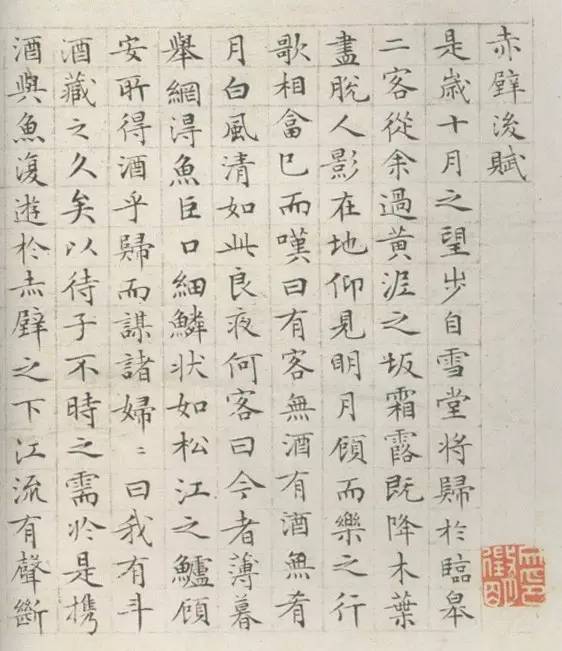 赤壁後賦
是歲十月之望步自雪堂將歸於臨皋
二客從余過黃涯之坂霜露既降木葉
盡脫人影在地仰見明月顧而樂之行
歌相畣已而嘆曰有客無酒有酒無肴
月白風清如此良夜何客曰今者薄暮
舉網得魚巨口細鱗狀如松江之鱸顧
安所得酒乎歸而謀諸婦〻曰我有斗
酒藏之久矣以待子不時之需於是攜
酒與魚復遊於赤壁之下江流有聲斷